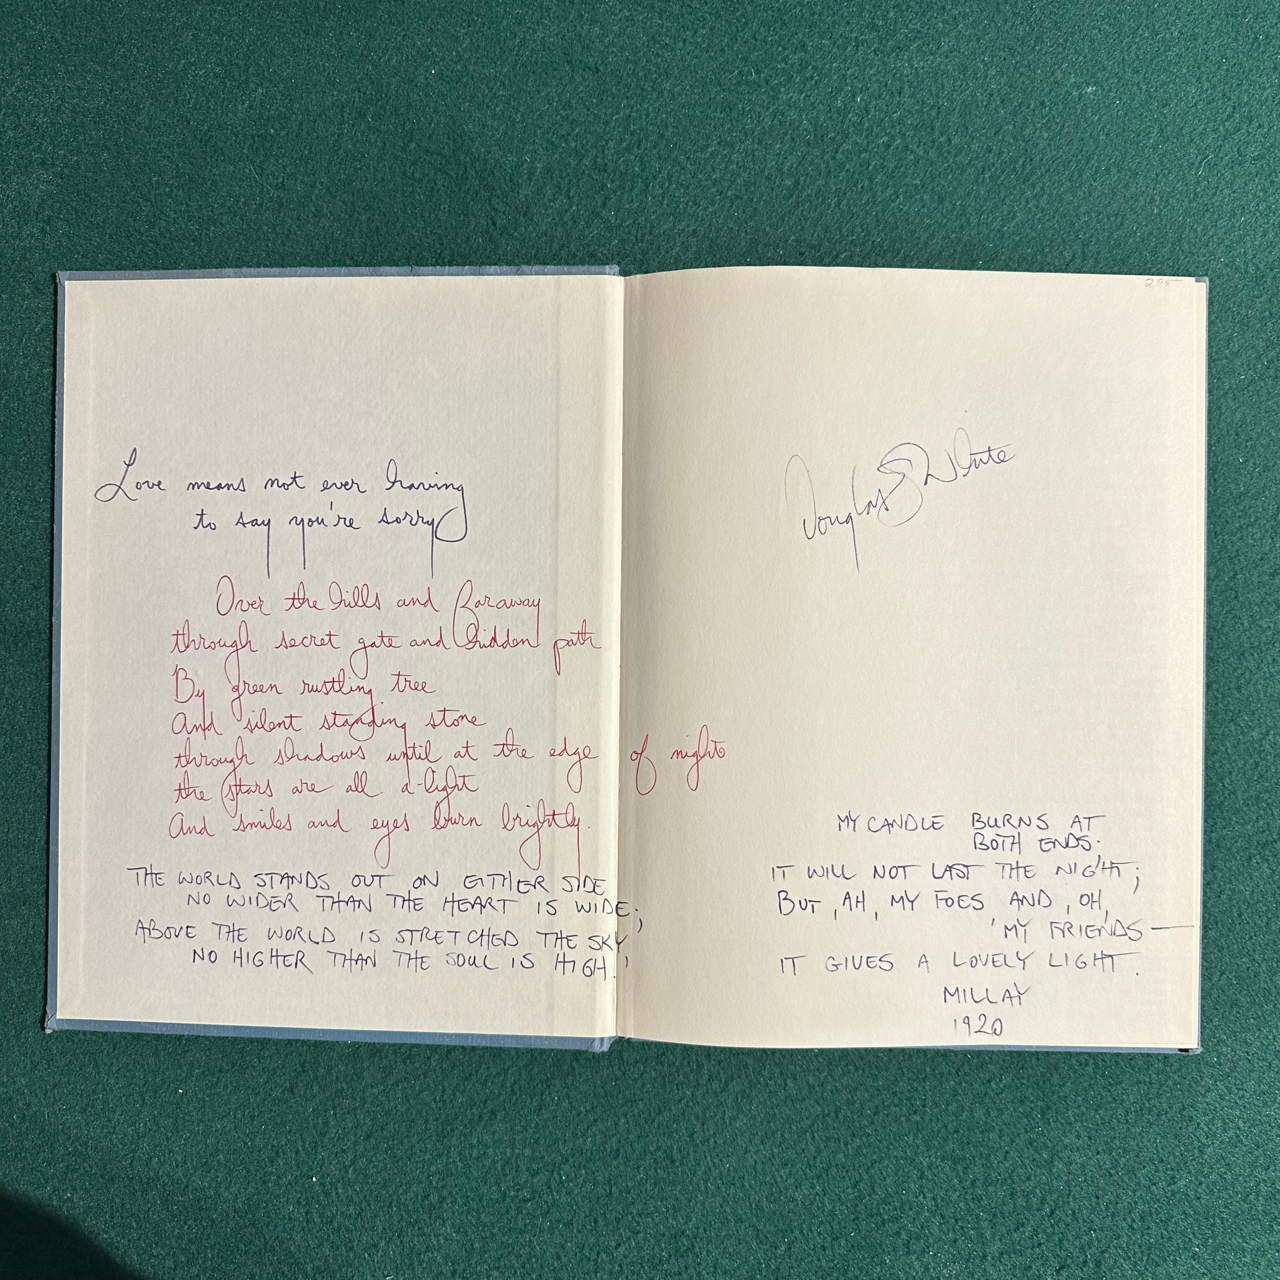 Love means not ever having
to say you're sorry
Over the hills and faraway
through secret gate and hidden path
By green rustling tree
And silent standing stone
through shadows until at the edge of night
the stars are all a-light
And smiles and eyes burn brightly.
THE WORLD STANDS OUT ON EITHER SIDE
NO WIDER THAN THE HEART IS WIDE;
ABOVE THE WORLD IS STRETCHED THE SKY,
NO HIGHER THAN THE SOUL IS HIGH.
Douglas S White
MY CANDLE BURNS AT
BOTH ENDS.
IT WILL NOT LAST THE NIGHT;
BUT, AH, MY FOES AND, OH,
MY FRIENDS —
IT GIVES A LOVELY LIGHT.
MILLAY
1920